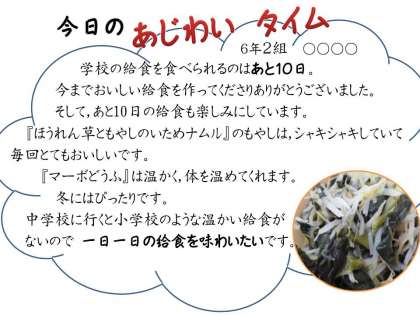 今日の あじわい タイム
6年2組 ○○○○
学校の給食を食べられるのはあと10日。
今までおいしい給食を作ってくださりありがとうございました。
そして,あと10日の給食も楽しみにしています。
『ほうれん草ともやしのいためナムル』のもやしは,シャキシャキしていて
毎回とてもおいしいです。
『マーボどうふ』は温かく,体を温めてくれます。
冬にはぴったりです。
中学校に行くと小学校のような温かい給食が
ないので 一日一日の給食を味わいたいです。